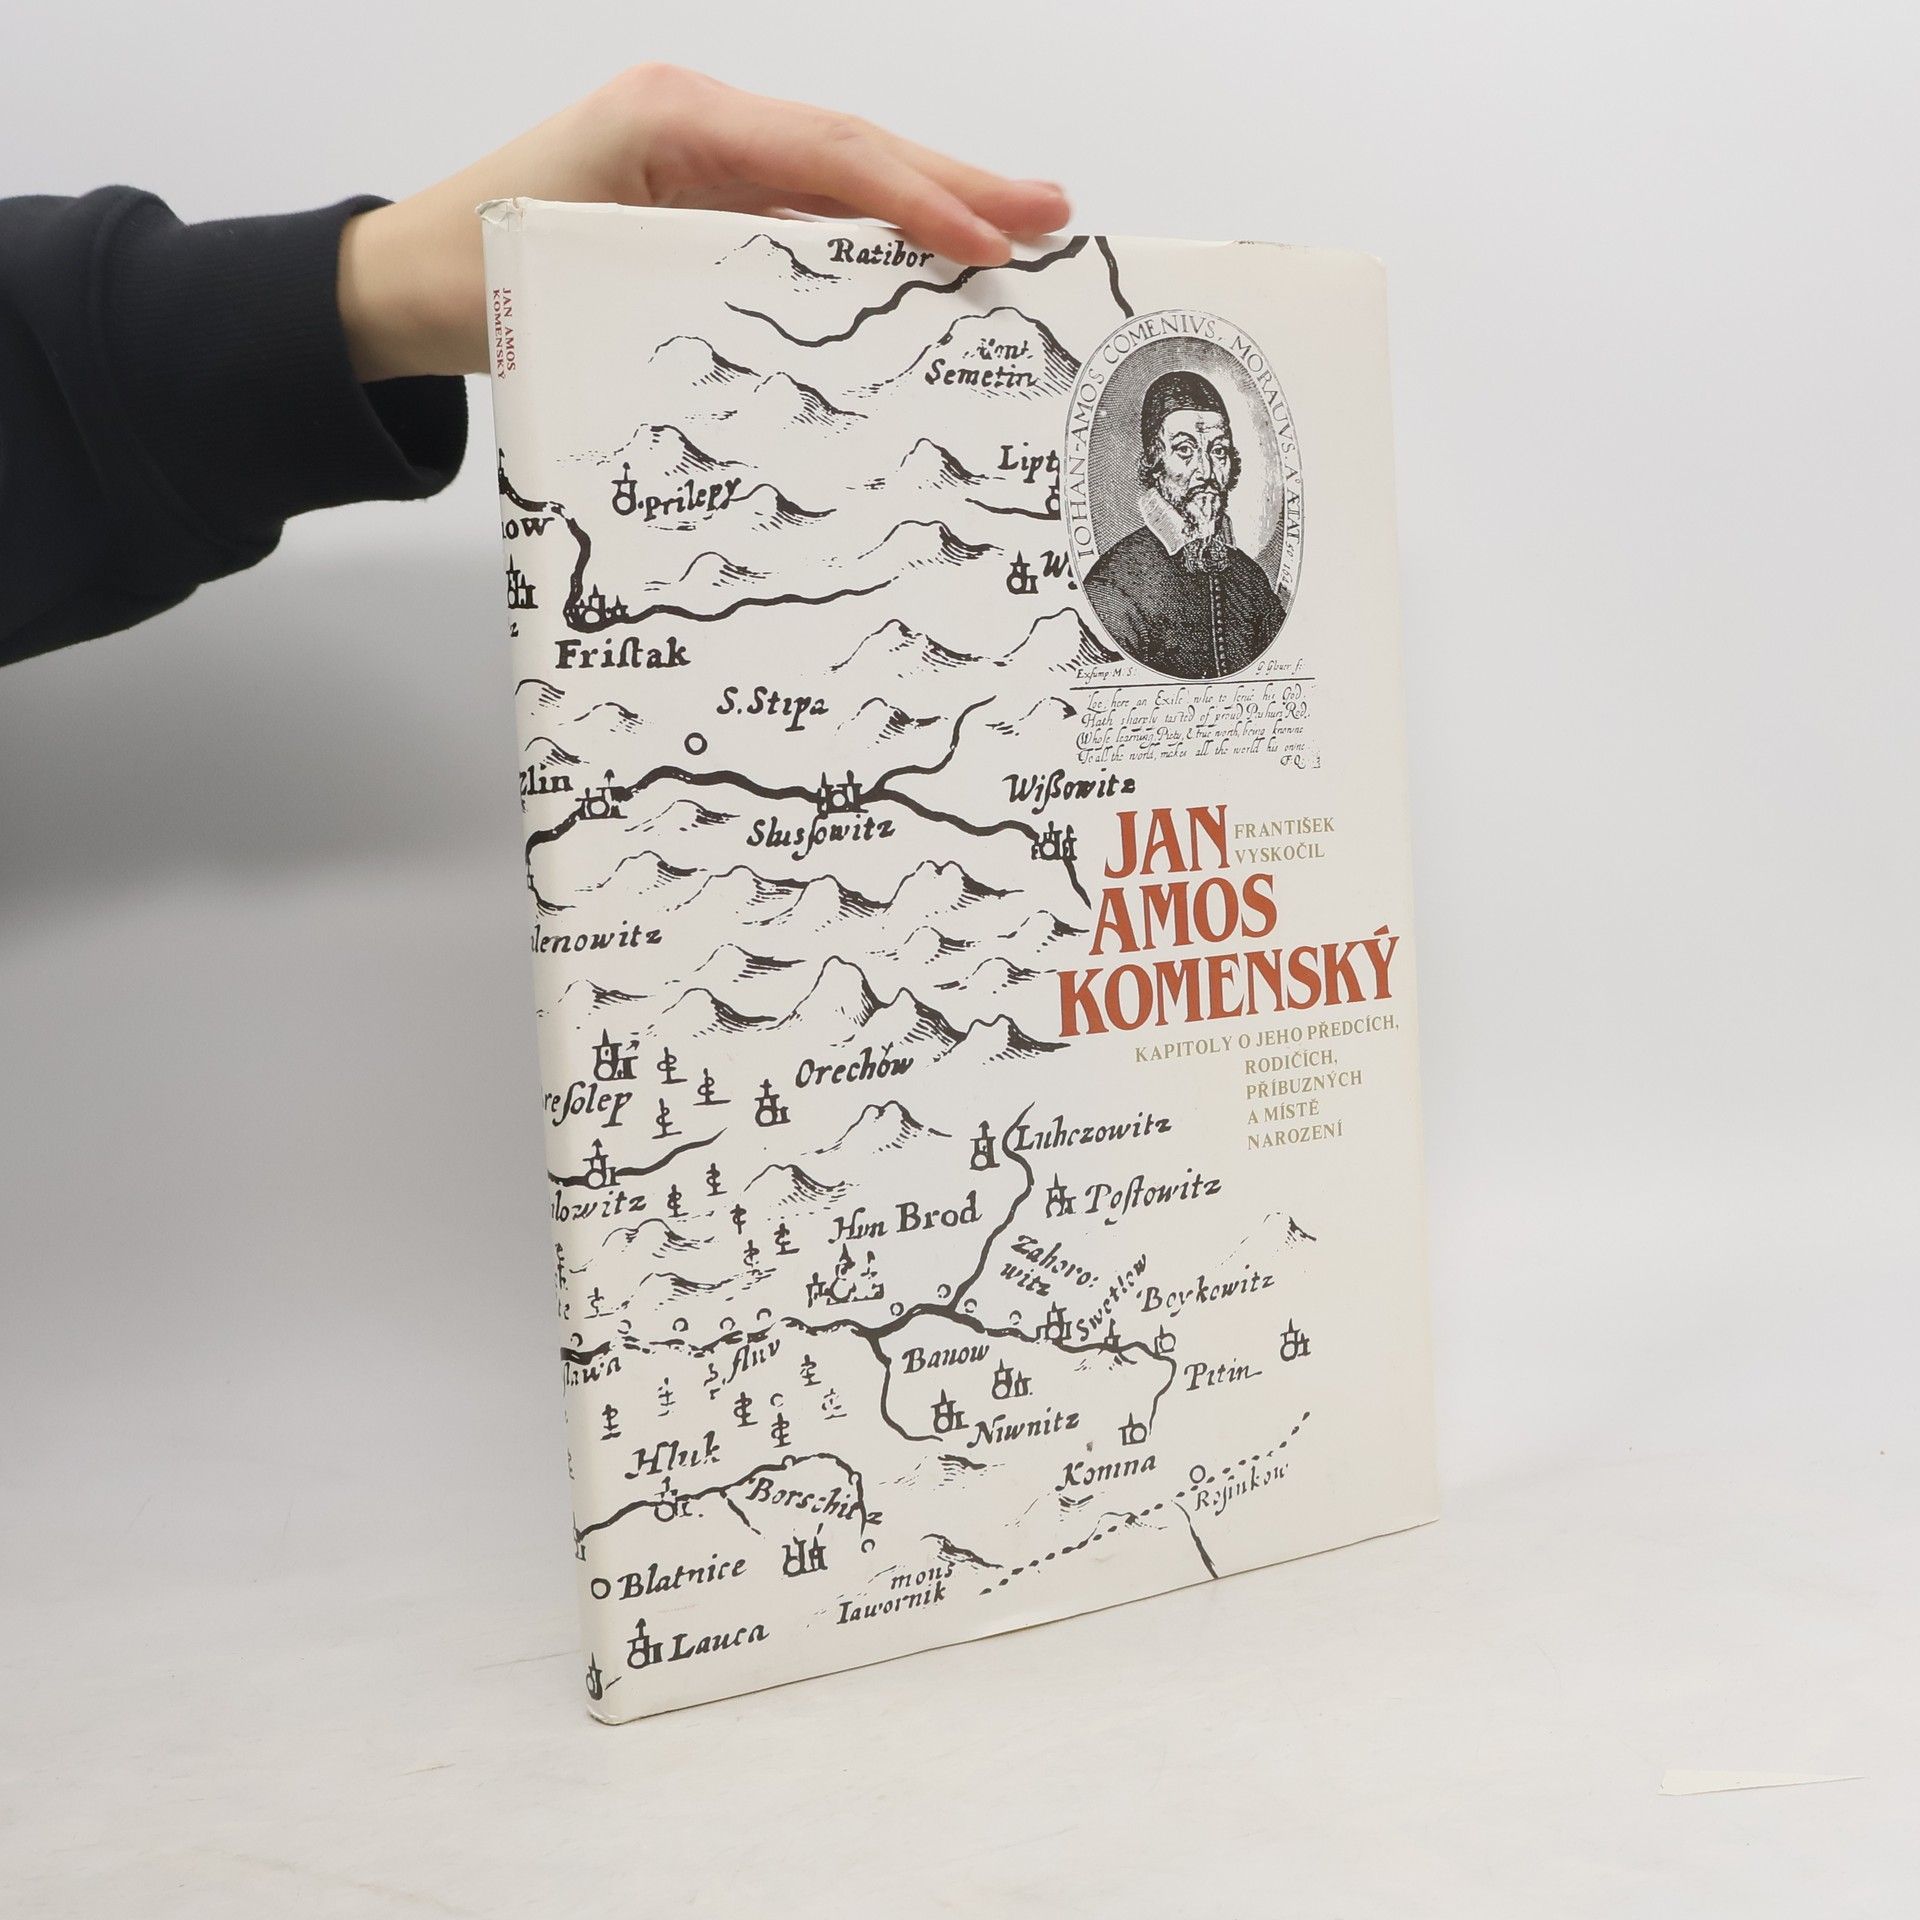 JAN AMOS
KOMENSKÝ
Ratibor
Mont.
Semetin
Prilepy
Lipt
ow
W
Friſtak
S. Stipa
zlin
Wißowitz
Sluſſowitz
lenowitz
Orechów
reſolep
Luhczowitz
lowitz
Poſtowitz
Hun Brod
Zahoro:
witz
Swetlow
Boykowitz
Banow
fluv
Pitin
Niwnitz
Hluk
Komna
Borschitz
Blatnice
mons
Iawornik
Lauca
IOHAN-AMOS COMENIVS, MORAUVS. A° ÆTAT 50: 1642
G: Glouer. fc:
Loe, here an Exile, who to serue his God,
Hath sharply tasted of proud Pashurs Rod,
Whose learning, Piety, & true worth, being knowne
To all the world, makes all the world his owne.
F. Q:
JAN
AMOS
KOMENSKÝ
FRANTIŠEK
VYSKOČIL
KAPITOLY O JEHO PŘEDCÍCH,
RODIČÍCH,
PŘÍBUZNÝCH
A MÍSTĚ
NAROZENÍ